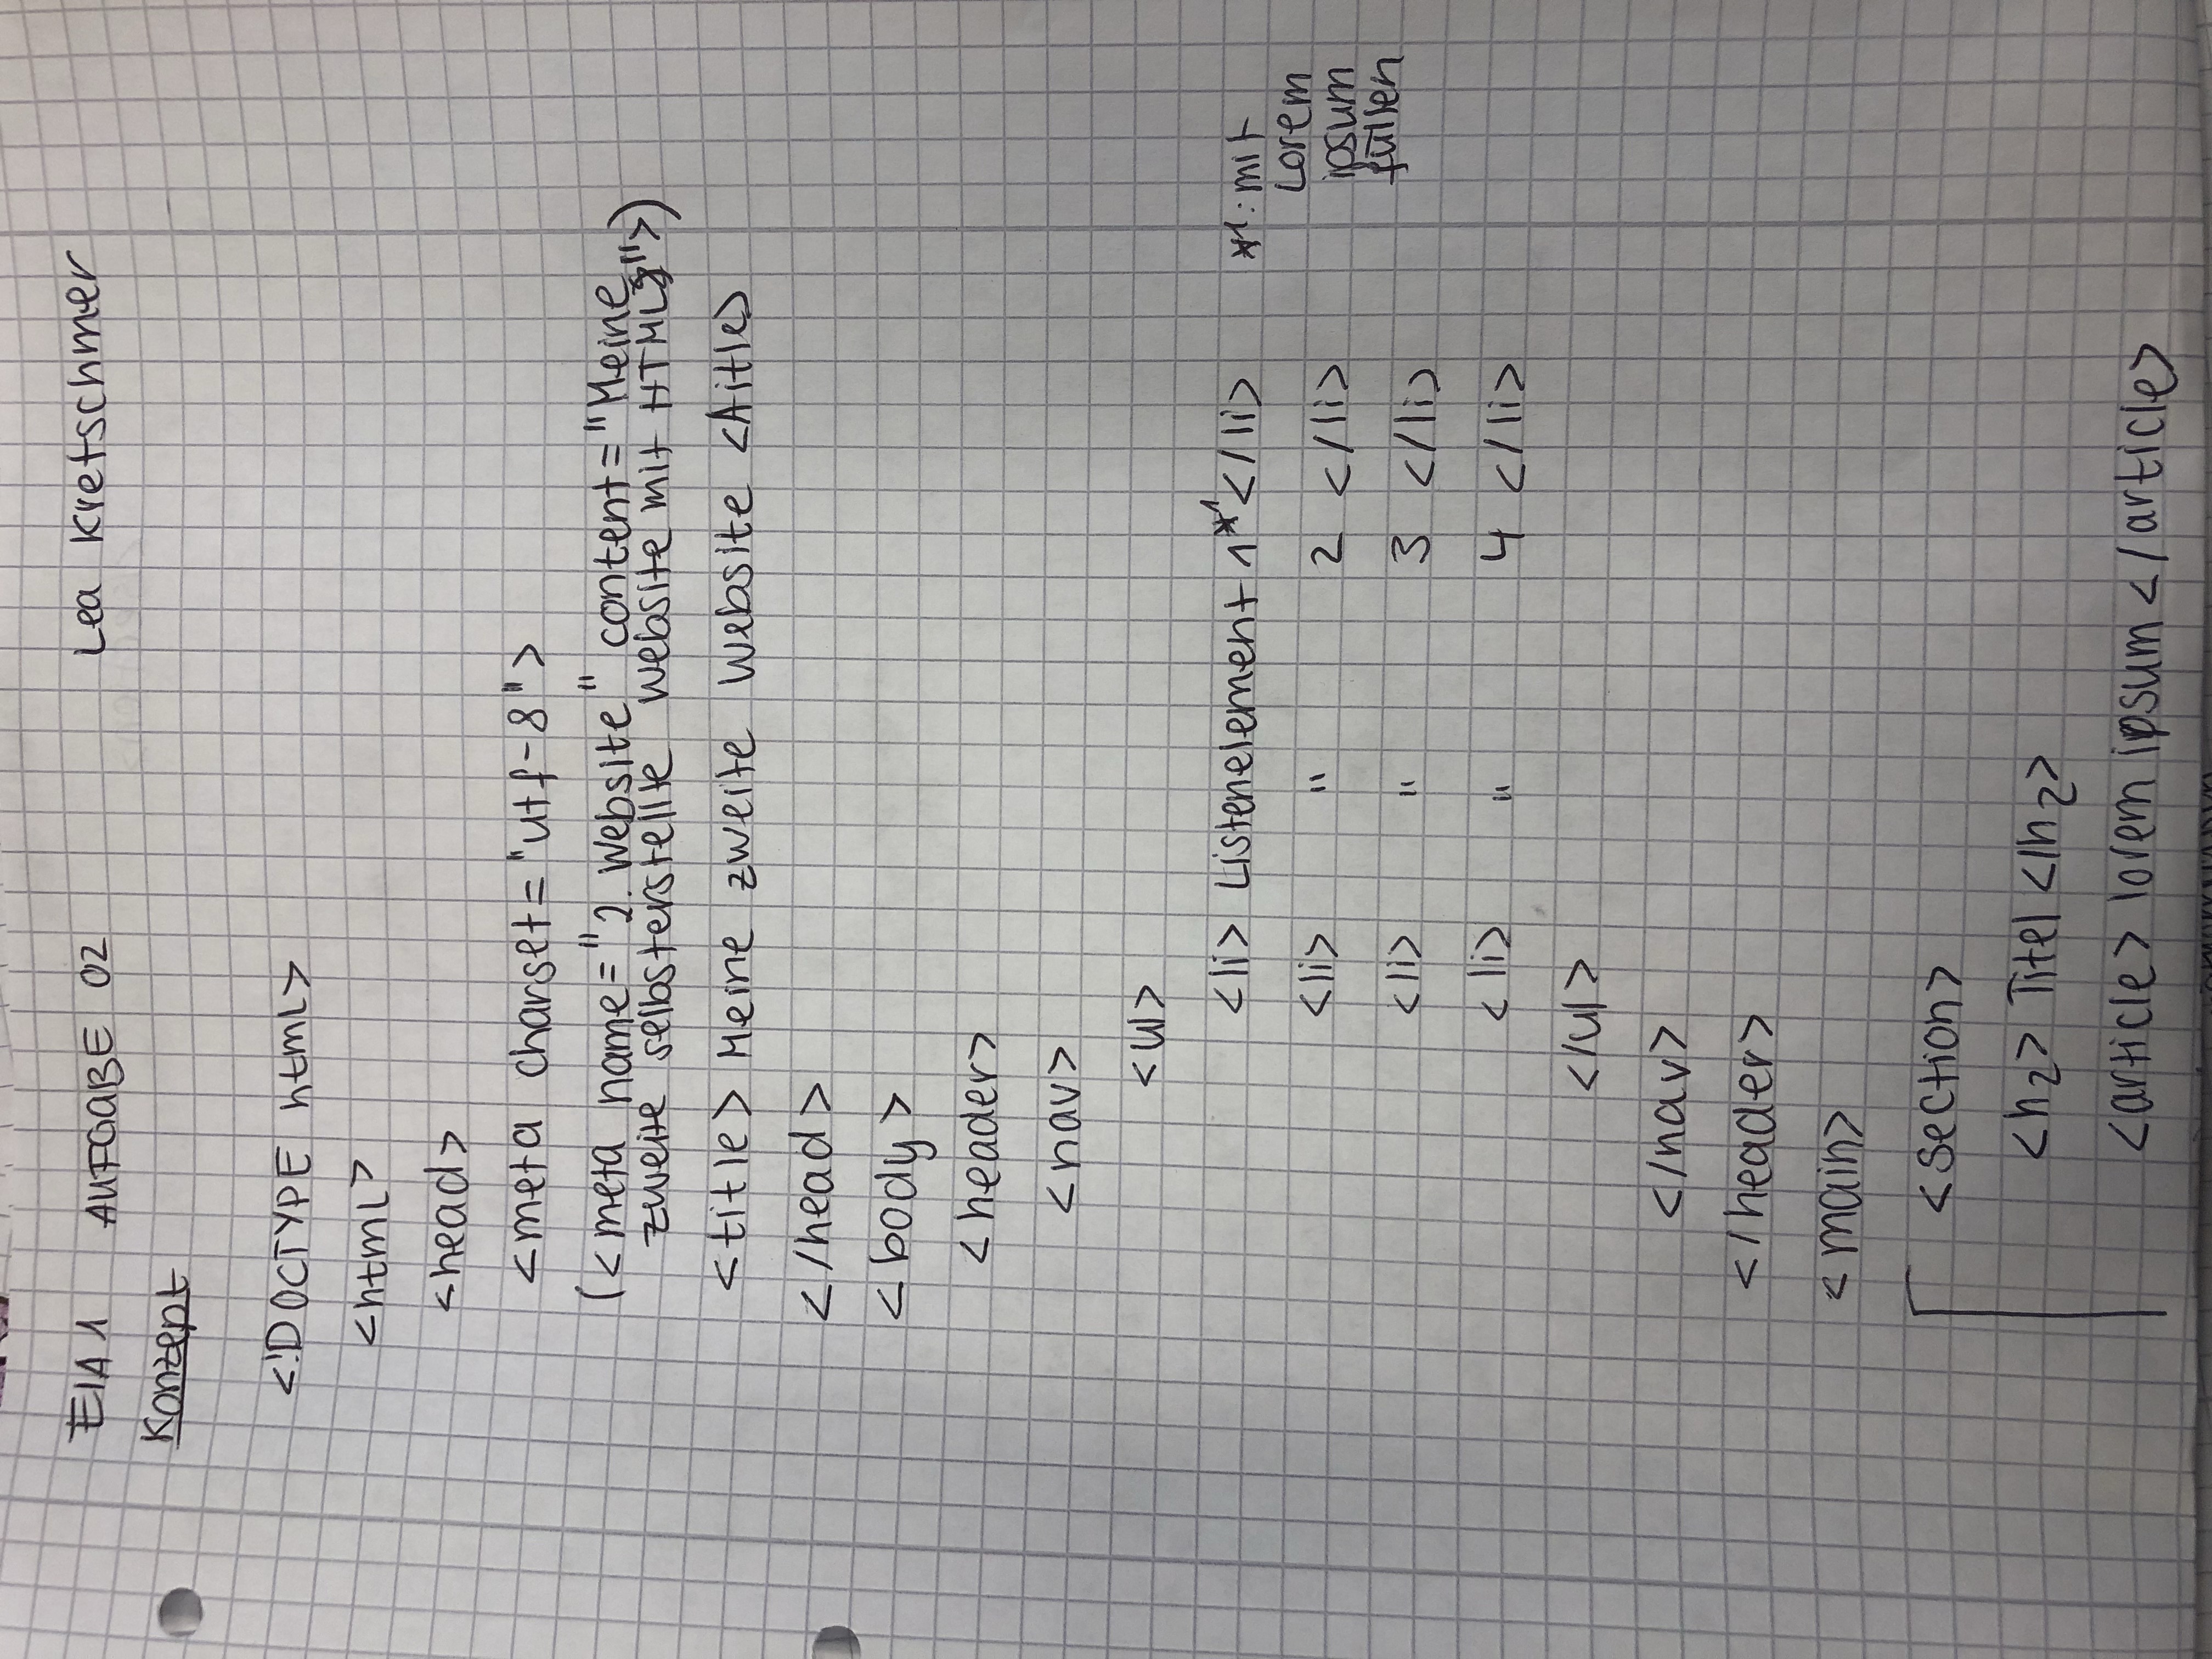 EIA1 AUFGABE 02 Lea Kretschmer
Konzept
<!DOCTYPE html>
<html>
<head>
<meta charset="utf-8">
(<meta name="2. Website" content="Meine
zweite selbsterstellte Website mit HTML">)
<title> Meine zweite Website </title>
</head>
<body>
<header>
<nav>
<ul>
<li> Listenelement 1*1 </li>
*1: mit
Lorem
ipsum
füllen
<li> " 2 </li>
<li> " 3 </li>
<li> " 4 </li>
</ul>
</nav>
</header>
<main>
<section>
<h2> Titel </h2>
<article> lorem ipsum </article>